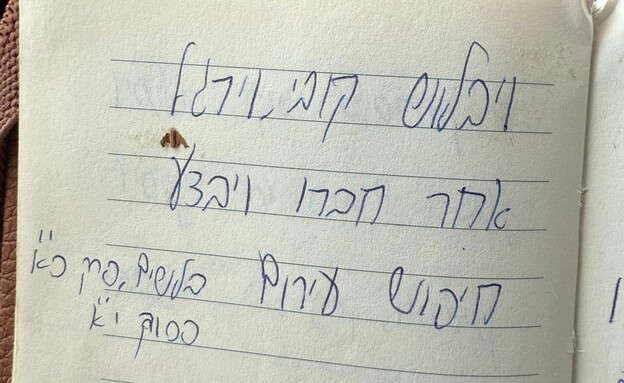 ויבלוש קובי, וירגל
אחר חברו ויבצע
חיפוש עירום בלושים, פרק כ"א
פסוק י"א